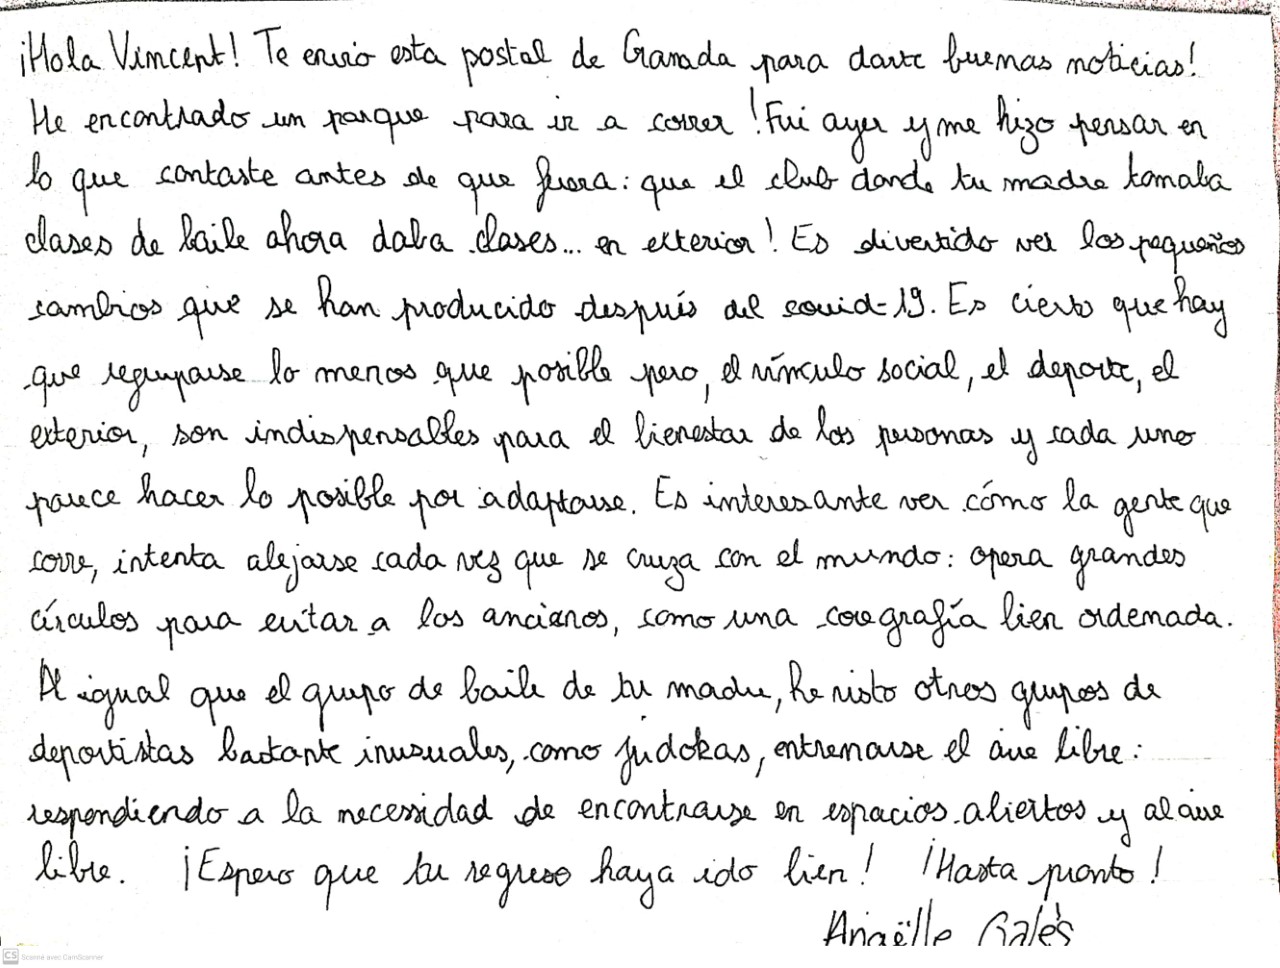 ¡Hola Vincent! Te envio esta postal de Granada para darte buenas noticias!
He encontrado un parque para ir a correr! Fui ayer y me hizo pensar en
lo que contaste antes de que fuera: que el club donde tu madre tomaba
clases de baile ahora daba clases... en exterior! Es divertido ver los pequeños
cambios que se han producido después del covid-19. Es cierto que hay
que regruparse lo menos que posible pero, el vínculo social, el deporte, el
exterior, son indispensables para el bienestar de las personas y cada uno
parece hacer lo posible por adaptarse. Es interesante ver cómo la gente que
corre, intenta alejarse cada vez que se cruza con el mundo: opera grandes
círculos para evitar a los ancianos, como una coregrafía bien ordenada.
Al igual que el grupo de baile de tu madre, he visto otros grupos de
deportistas bastante inusuales, como judokas, entrenarse el aire libre:
respondiendo a la necessidad de encontrarse en espacios abiertos y al aire
libre. ¡Espero que tu regreso haya ido bien! ¡Hasta pronto!
Anaëlle Galès
CS Scanné avec CamScanner